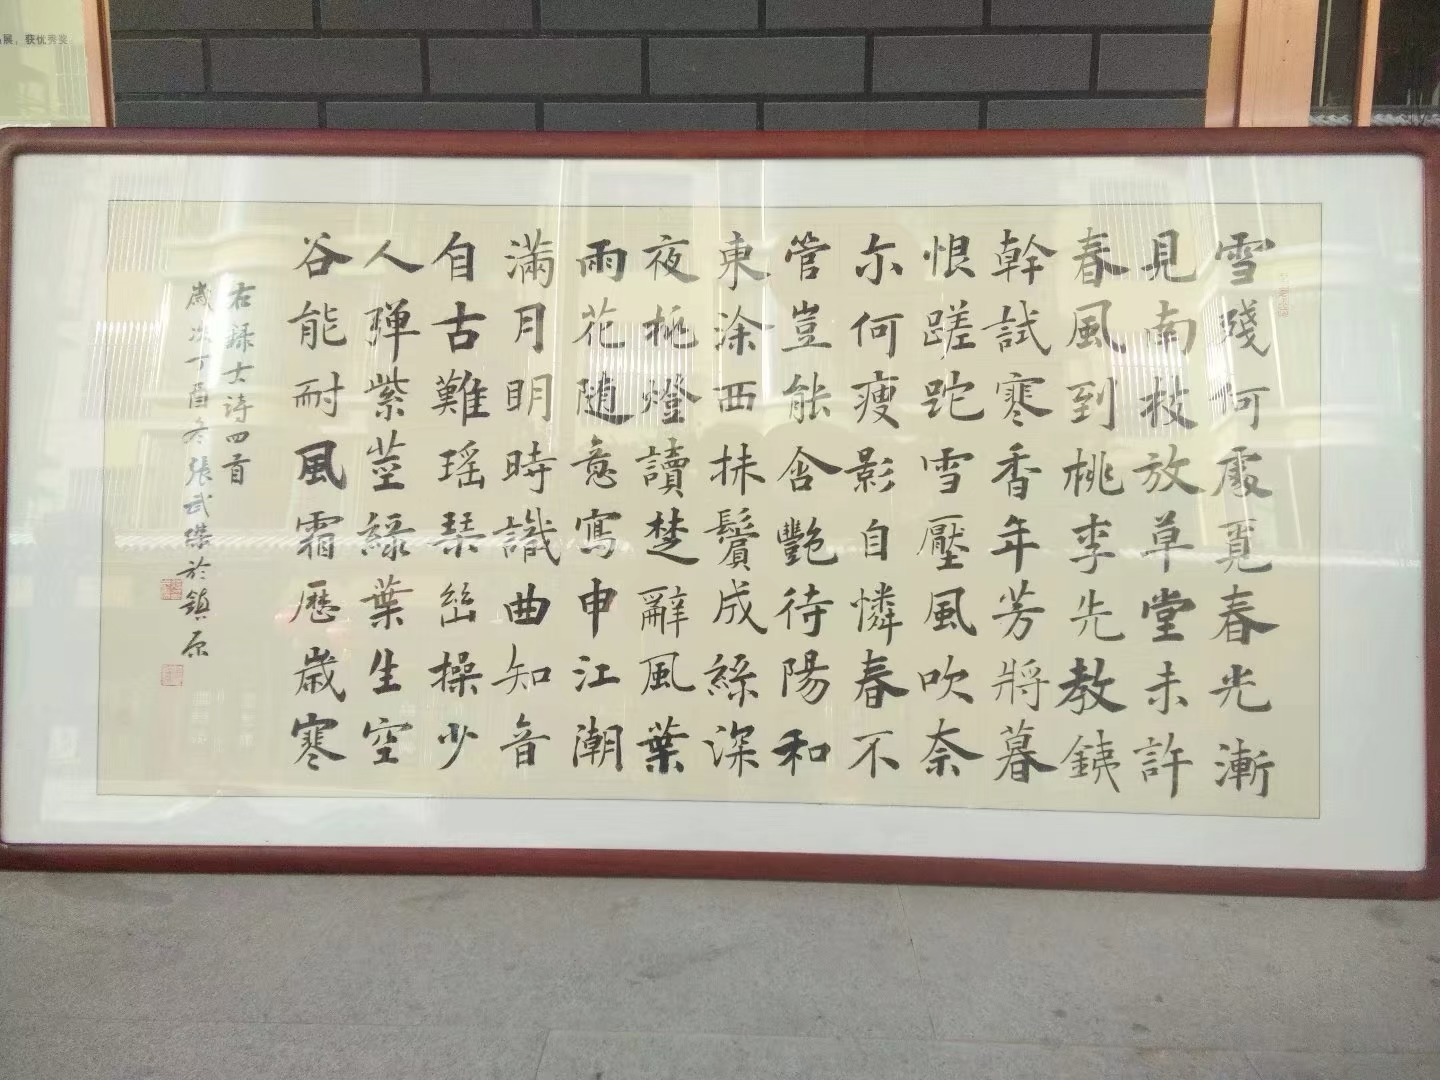 雪殘何處覓春光漸
見南枝放草堂未許
春風到桃李先教鐵
幹試寒香年芳將暮
恨蹉跎雪壓風吹奈
尔何瘦影自憐春不
管豈能含艷待陽和
東涂西抹鬢成絲深
夜挑燈讀楚辭風葉
雨花随意寫申江潮
滿月明時識曲知音
自古難瑶琴幽操少
人彈紫莖綠葉生空
谷能耐風霜歷歲寒
右録古詩四首
歲次丁酉冬張武傑於鎮原
展，获优秀奖